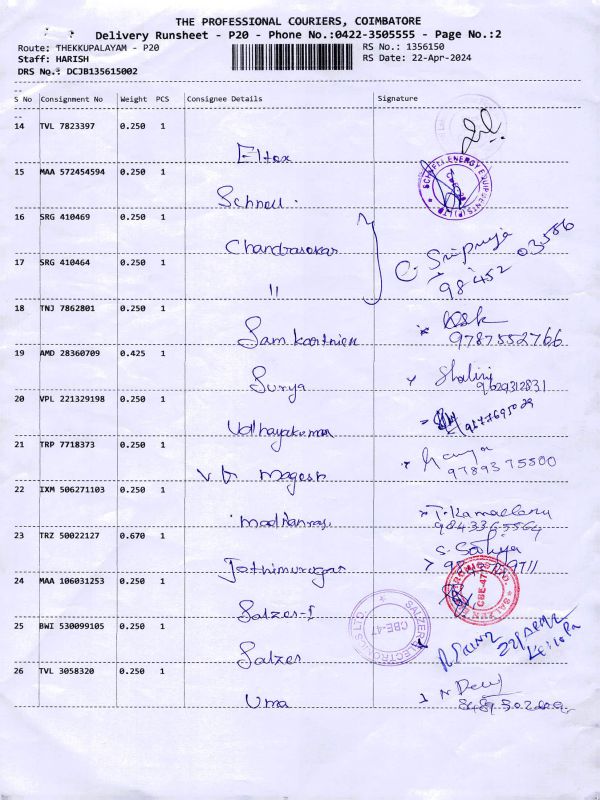 THE PROFESSIONAL COURIERS, COIMBATORE
Delivery Runsheet - P20 - Phone No.:0422-3505555 - Page No.:2
Route: THEKKUPALAYAM - P20
RS No.: 1356150
Staff: HARISH
RS Date: 22-Apr-2024
DRS No.: DCJB135615002
S No Consignment No Weight PCS Consignee Details Signature
14 TVL 7823397 0.250 1
Eltex
15 MAA 572454594 0.250 1
SCHNELL ENERGY EQUIPMENTS (P) LTD
Schnell.
16 SRG 410469 0.250 1
Chandrasekar
C. Sripriya
98452 03586
17 SRG 410464 0.250 1
"
18 TNJ 7862801 0.250 1
Sam karthien
9787552766
19 AMD 28360709 0.425 1
Surya
Shalini
9629312831
20 VPL 221329198 0.250 1
Udhayakumar
21 TRP 7718373 0.250 1
V.P. Magesh
9789375500
22 IXM 506271103 0.250 1
Madhanraj
T. Kamaleeny
9843365564
23 TRZ 50022127 0.670 1
Jothimurugan
S. Sathya
24 MAA 106031253 0.250 1
Salzer-I
CBE-47
25 BWI 530099105 0.250 1
SALZER ELECTRONICS LTD.
CBE-47
Salzer
4:10 Pm
26 TVL 3058320 0.250 1
Uma
N Devi